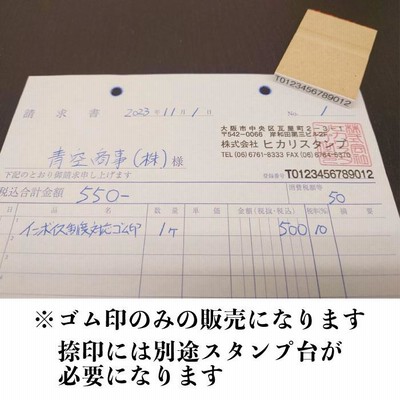 T0123456789012
請求書 2023年11月1日 No. 1
大阪市中央区瓦屋町2-3-
〒542-0066 岸和田第三ビル
青空商事(株)様
株式会社 ヒカリスタンプ
TEL (06) 6761-8333 FAX (06) 6764-5570
下記のとおり御請求申し上げます
登録番号 T0123456789012
税込合計金額 550- 消費税額等 50
品名 数量 単価 金額(税抜・税込) 税率% 摘要
1 インボイス制度対応ゴム印 1ヶ 500 10
2
3
※ゴム印のみの販売になります
捺印には別途スタンプ台が
必要になります